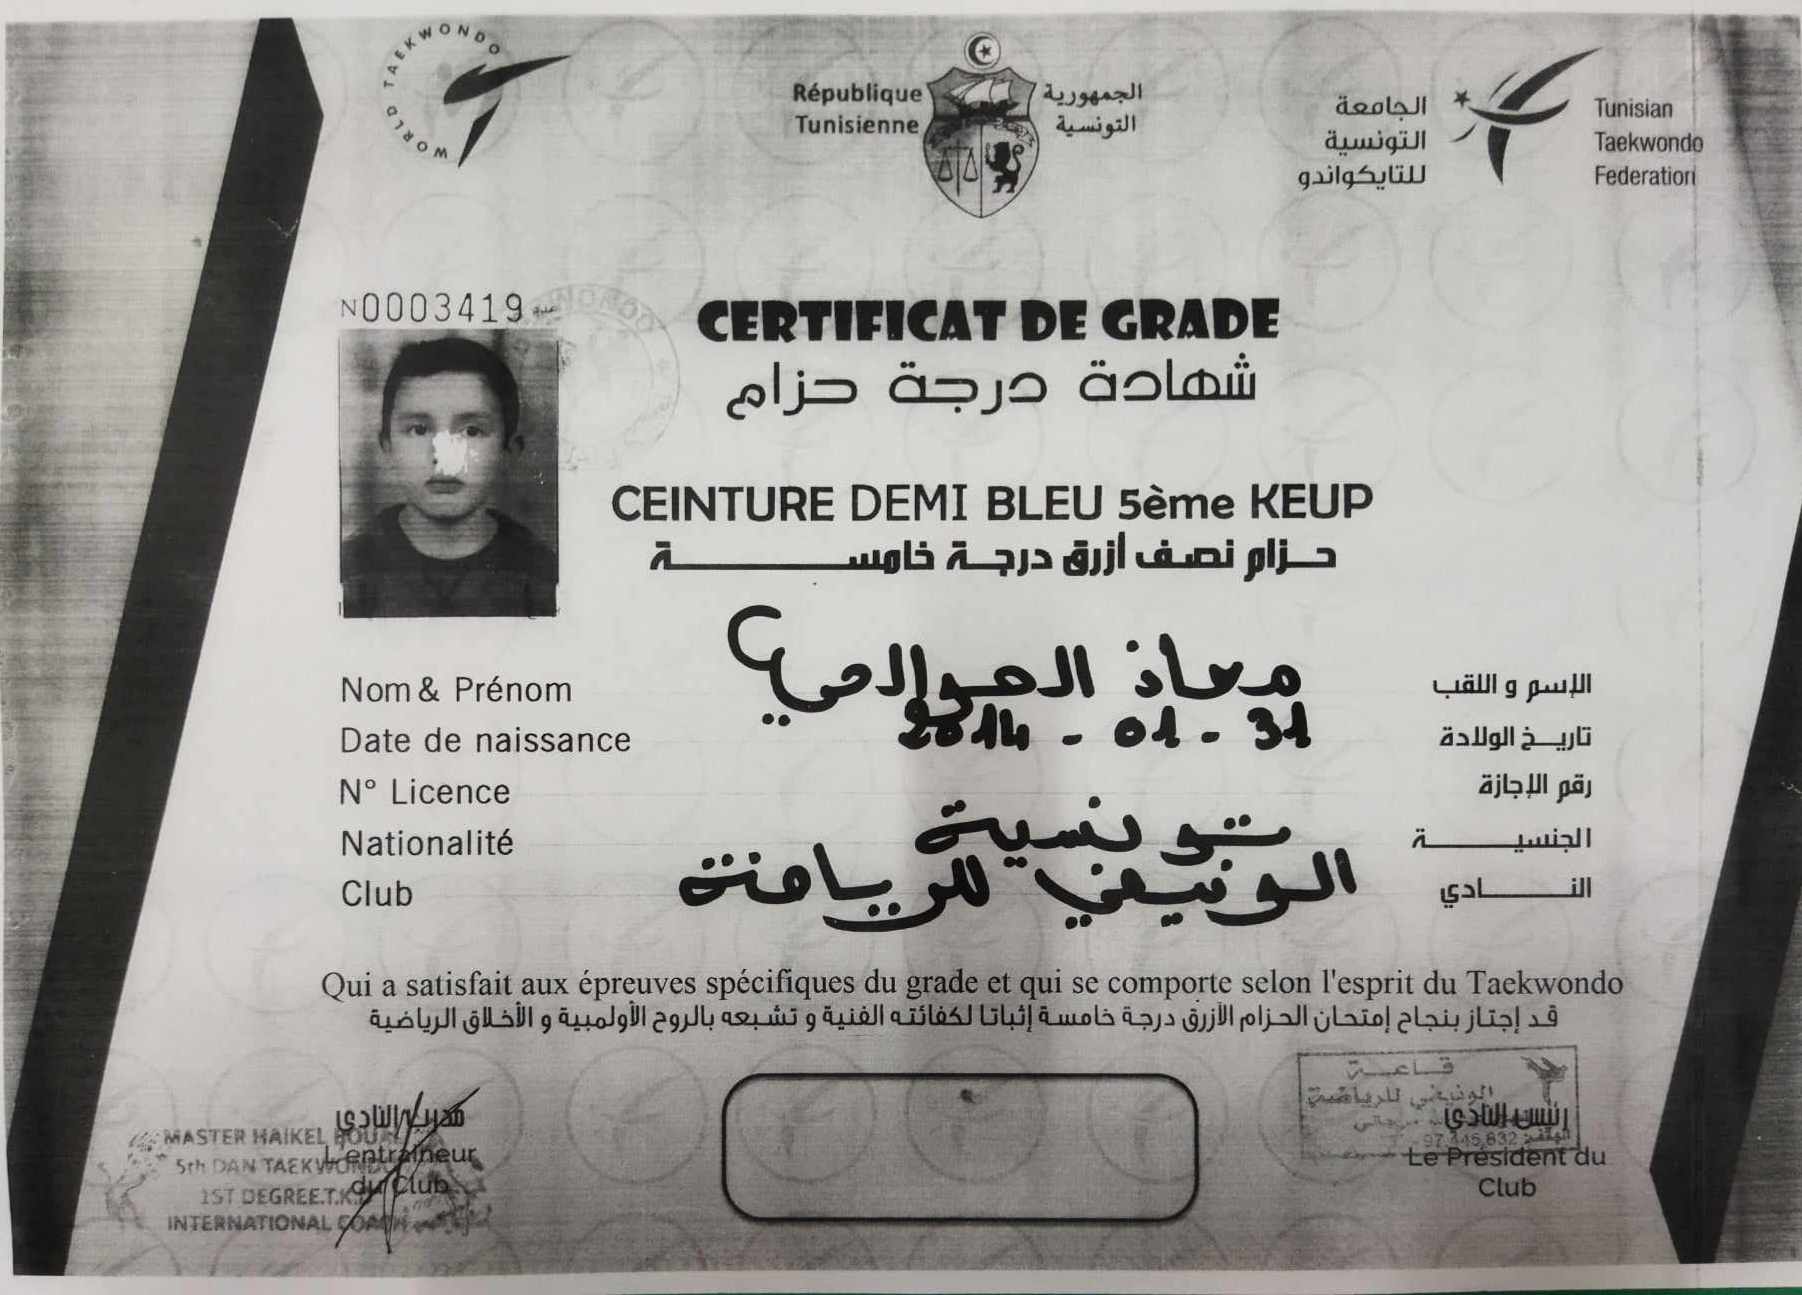 WORLD TAEKWONDO
République
Tunisienne
الجمهورية
التونسية
الجامعة
التونسية
للتايكواندو
Tunisian
Taekwondo
Federation
N0003419 عدد
CERTIFICAT DE GRADE
شهادة درجة حزام
CEINTURE DEMI BLEU 5ème KEUP
حزام نصف أزرق درجة خامسة
Nom & Prénom معاذ الصوالحي الإسم و اللقب
Date de naissance 2014 - 01 - 31 تاريخ الولادة
N° Licence رقم الإجازة
Nationalité تونسية الجنسية
Club الونيفي للرياضة النادي
Qui a satisfait aux épreuves spécifiques du grade et qui se comporte selon l'esprit du Taekwondo
قد إجتاز بنجاح إمتحان الحزام الأزرق درجة خامسة إثباتا لكفائته الفنية و تشبعه بالروح الأولمبية و الأخلاق الرياضية
مدرب النادي
L'entraîneur
du Club
MASTER HAIKEL
5th DAN TAEKWONDO
1ST DEGREE.T.K.
INTERNATIONAL COACH
قاعة
الونيفي للرياضة
97.445.832
رئيس النادي
Le Président du
Club